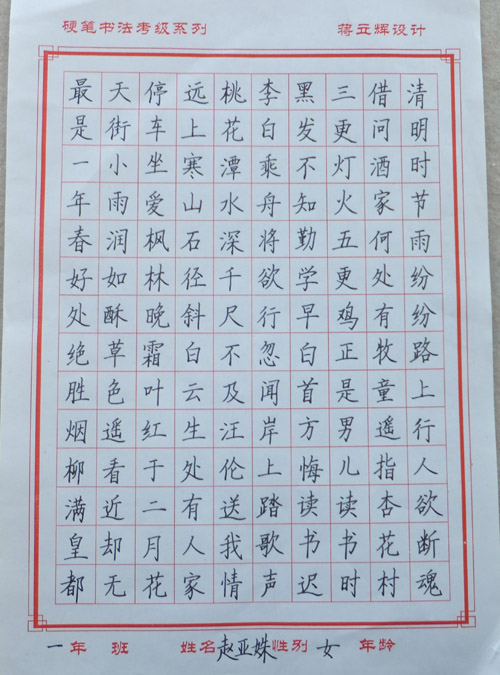 硬笔书法考级系列 蒋立辉设计
清明时节雨纷纷路上行人欲断魂
借问酒家何处有牧童遥指杏花村
三更灯火五更鸡正是男儿读书时
黑发不知勤学早白首方悔读书迟
李白乘舟将欲行忽闻岸上踏歌声
桃花潭水深千尺不及汪伦送我情
远上寒山石径斜白云生处有人家
停车坐爱枫林晚霜叶红于二月花
天街小雨润如酥草色遥看近却无
最是一年春好处绝胜烟柳满皇都
一年 班 姓名赵亚姝性别 女 年龄